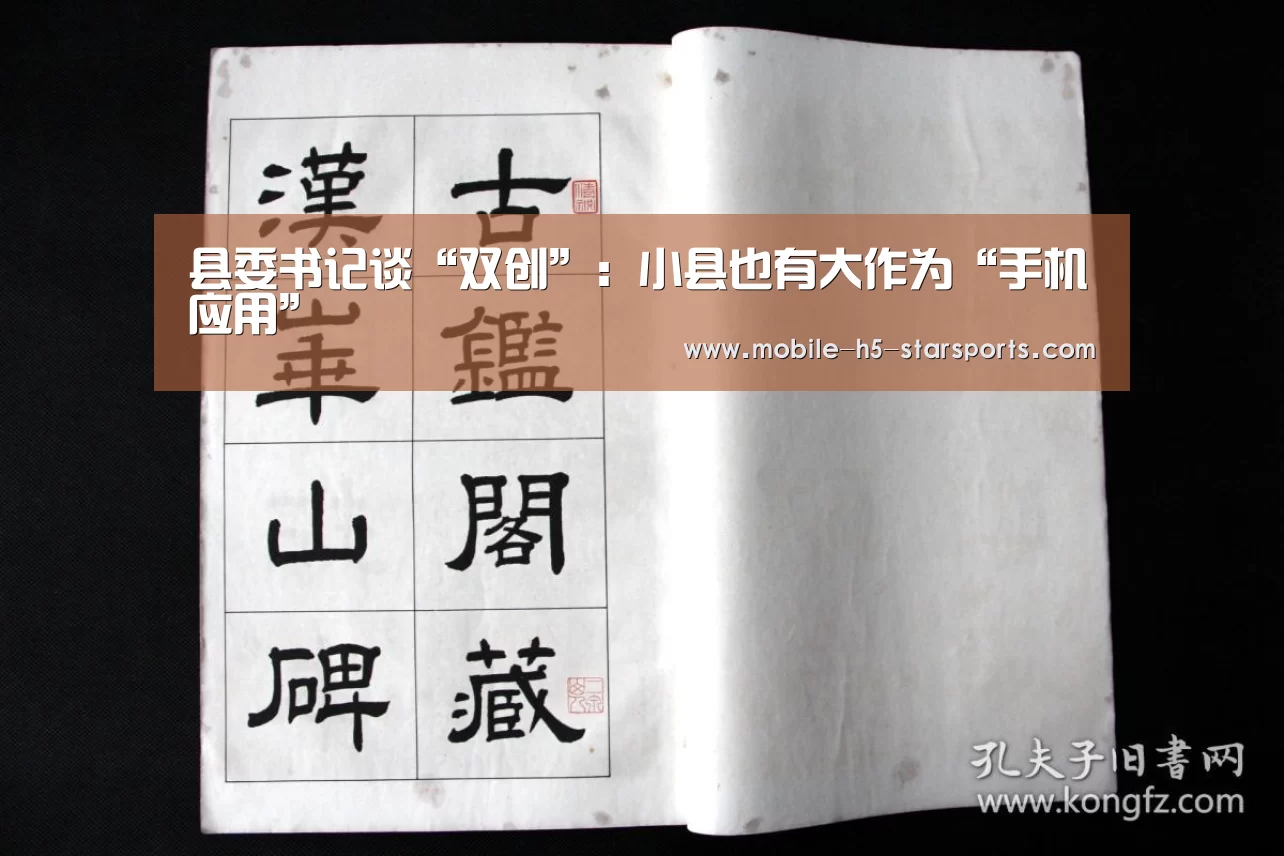 县委书记谈“双创”：小县也有大作为“手机
应用”
www.mobile-h5-starsports.com
古鑑閣藏
漢華山碑
孔夫子旧書网
www.kongfz.com